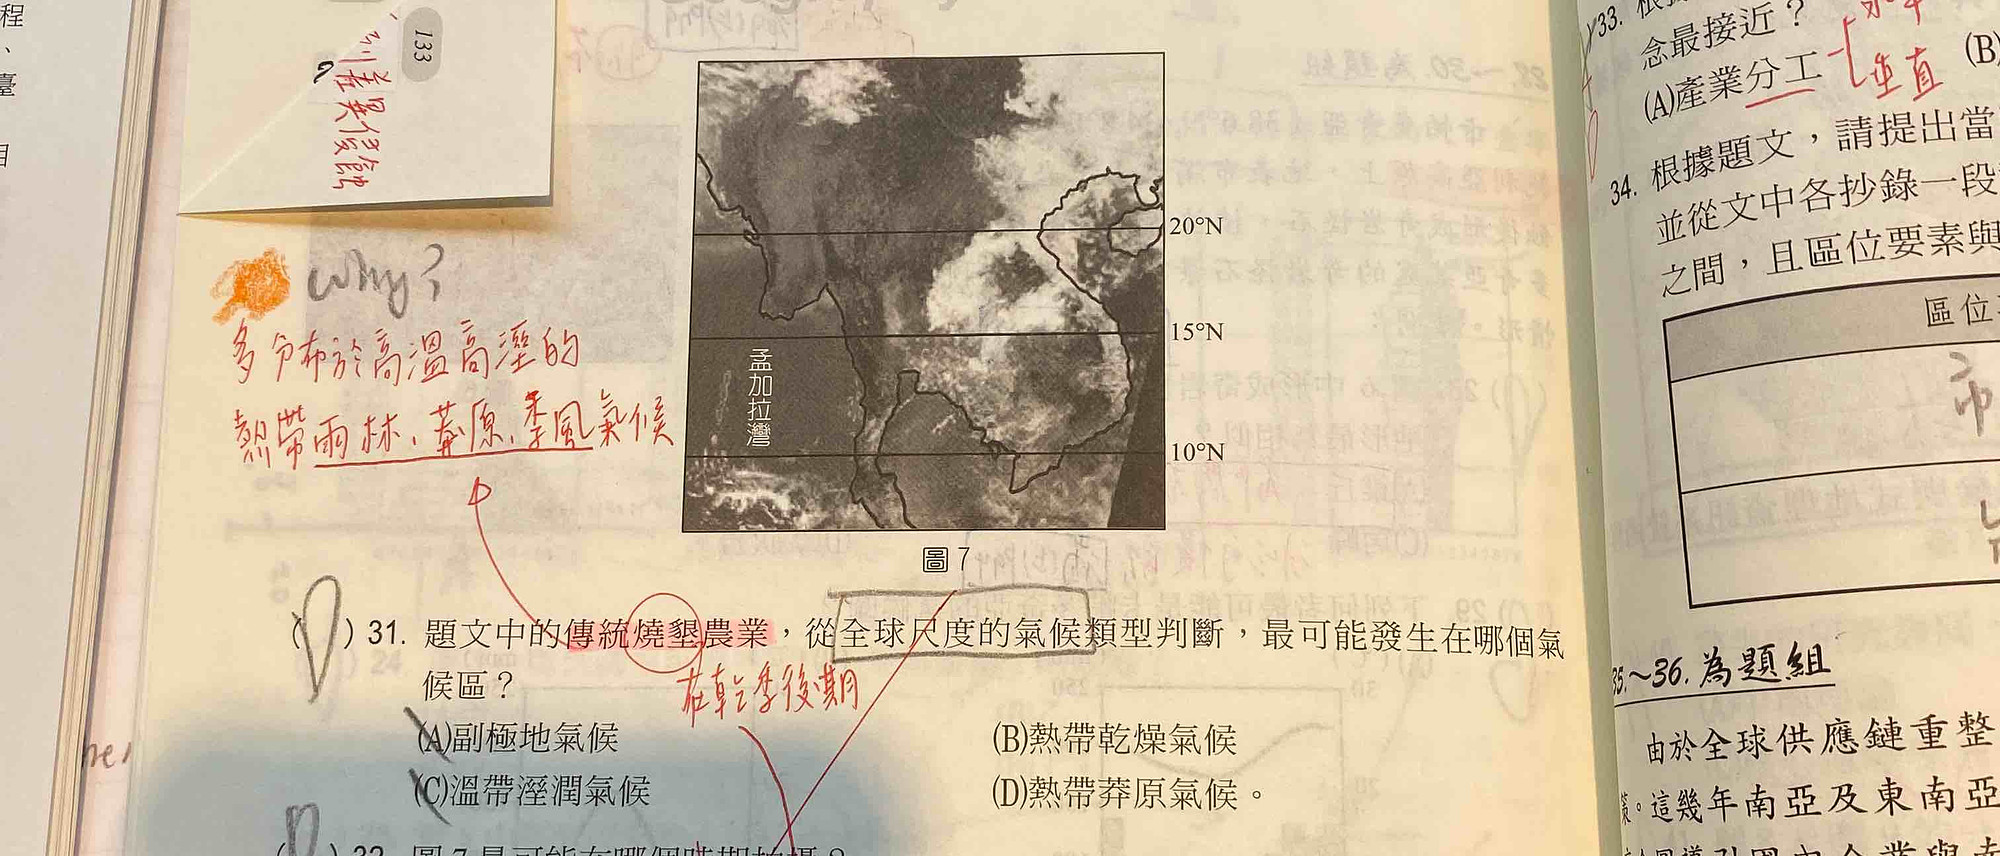 程
、
臺
133
差異侵蝕
why?
多分布於高溫高溼的
熱帶雨林、莽原、季風氣候
20°N
15°N
10°N
孟加拉灣
圖 7
(D) 31. 題文中的傳統燒墾農業，從全球尺度的氣候類型判斷，最可能發生在哪個氣
候區？
在乾季後期
(A)副極地氣候
(B)熱帶乾燥氣候
(C)溫帶溼潤氣候
(D)熱帶莽原氣候。
) 32. 圖 7 最可能在哪個時期拍攝？
33. 根據
念最接近？
水平
垂直
(A)產業分工
(B)
34. 根據題文，請提出當
並從文中各抄錄一段
之間，且區位要素與
區位
市
35.～36. 為題組
由於全球供應鏈重整
策。這幾年南亞及東南亞